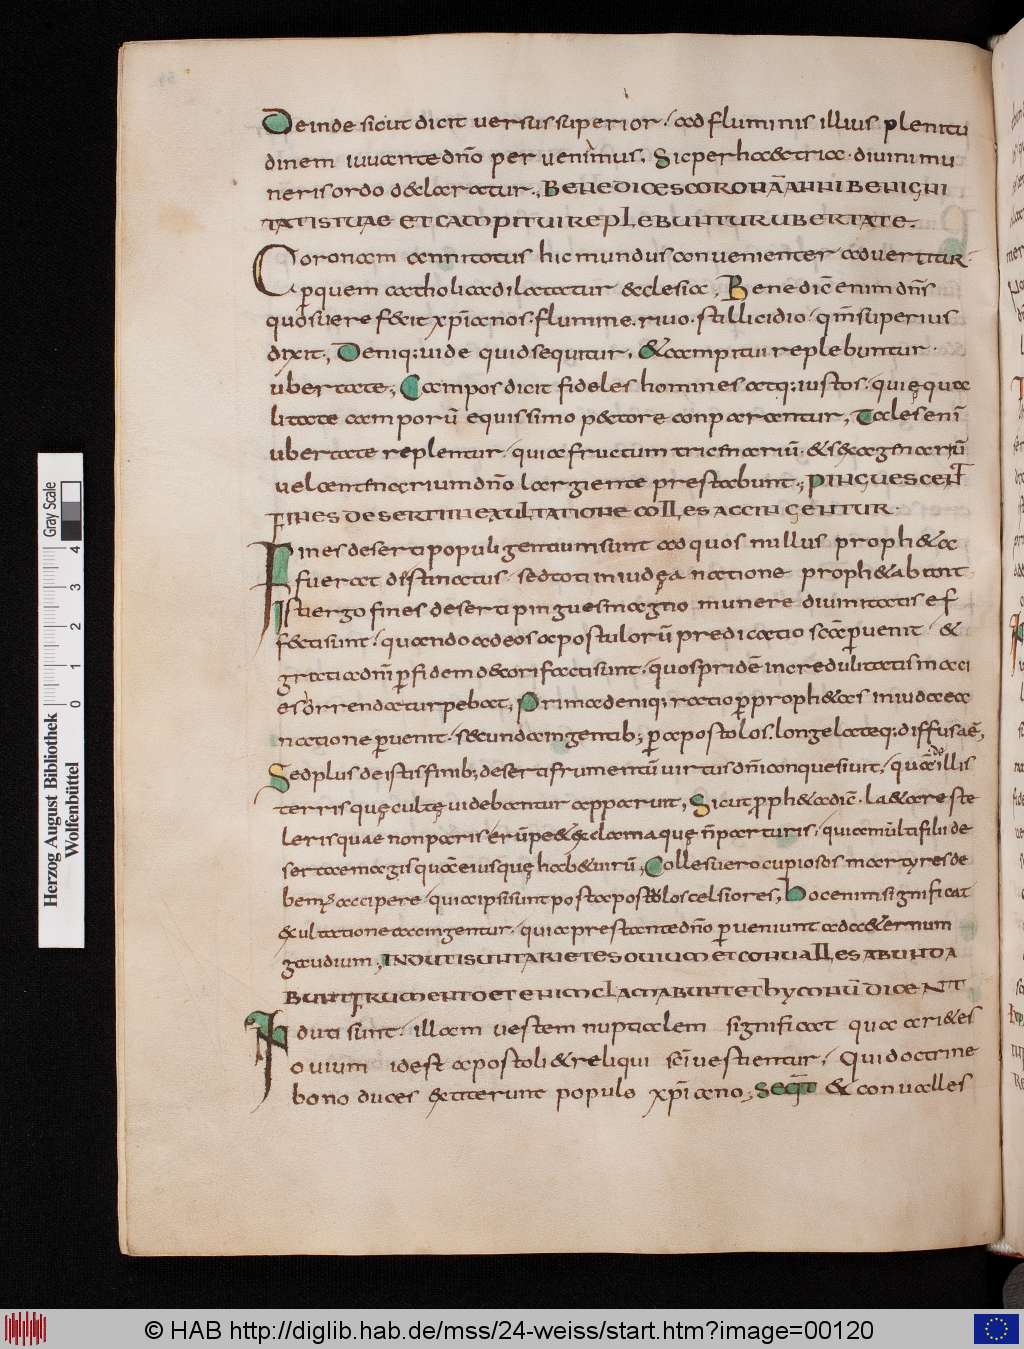 Deinde sicut dicit versus superior. ad fluminis illius plenitu
dinem iuuante dño per venimus. Sic per haec & tria. diuini mu
neris ordo declaratur., BENEDICES CORONÃ ANNI BENIGNI
TATIS TUAE ET CAMPI TUI REPLEBUNTUR UBERTATE.
Coronam anni totius hic mundus conuenienter aduertitur.
p quem catholica dilatatur ecclesia. Benedic̄ enim dñs
quos uere fecit xp̄ianos. flumine. riuo. stillicidio. qm̄ superius
dixit., Deniq; uide quid sequitur. & campi tui replebuntur
ubertate; Campos dicit fideles homines atq; iustos. qui ęqua
litate camporū equissimo pectore conparantur, Tales enī
ubertate replentur. quia fructum tricenariū. & sexagenariū
uel centenarium dño largiente prestabunt., PINGUESCENT
FINES DESERTI IN EXULTATIONE COLLES ACCINGENTUR.
Fines deserti populi gentium sunt ad quos nullus propheta
fuerat destinatus. sed toti in iudęa natione prophetabant
Isti ergo fines deserti pingues magno munere diuinitatis ef
fecti sunt. quando ad eos apostolorū predicatio scā peruenit. &
gratia dñi p fidem decori facti sunt. quos pridē incredulitatis maci
es orrenda turpebat, Prima deniq; ratio p prophetas in iudaea
natione puenit. secunda in gentib; p apostolos. longe lateq; diffusa ē,
Sed plus de istis finib; deserti frumentū uirtus dñi conquesiuit. quā de illis
terris quę cultę uidebantur apparuit, Sicut propheta dic̄. Laetare ste
leris quae non paris erūpe & exclama quę n̄ parturis. quia multi filii de
sertae magis quā eius quę habet uirū, Colles uero cupio sos martyres de
bem; accipere. quia ipsi sunt post apostolos celsiores, Hoc enim significat
exultatione accingentur. quia prestante dño perueniunt ad aeternum
gaudium; INDUTI SUNT ARIETES OUIUM ET CONUALLES ABUNDA
BUNT FRUMENTO ETENIM CLAMABUNT ET HYMNŪ DICENT
Induti sunt. illam uestem nuptialem significat qua arietes
ouium id est apostoli & reliqui sc̄i uestientur. Qui doctrine
bono duces extiterunt populo xp̄iano; Seqt̄ & conualles
Herzog August Bibliothek
Wolfenbüttel
Gray Scale
0 1 2 3 4
© HAB http://diglib.hab.de/mss/24-weiss/start.htm?image=00120